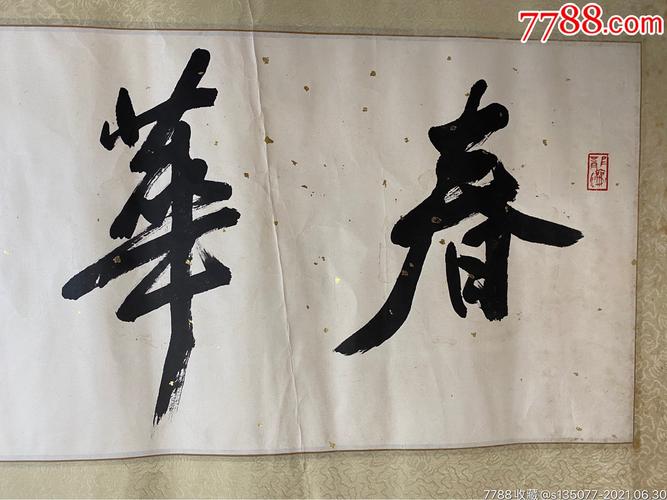 7788.com
春華
7788收藏@s135077-2021.06.30